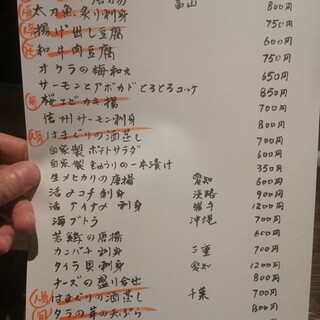 富山 800円
人気 太刀魚炙り刺身 750円
揚げ出し豆腐 600円
和牛肉豆腐 750円
オクラの梅和え 650円
サーモンとアボカドとろとろユッケ 850円
旬 桜エビかき揚 700円
信州サーモン刺身 800円
人気 はまぐりの酒蒸し 700円
自家製ポテトサラダ 600円
自家製きゅうりの一本漬け 350円
生メヒカリの唐揚 愛知 600円
活〆コチ刺身 淡路 900円
活アイナメ刺身 岩手 1200円
海ブドウ 沖縄 700円
若鱶の唐揚 600円
カンパチ刺身 三重 700円
タイラ貝刺身 愛知 1200円
チーズの盛り合せ 800円
人気 はまぐりの酒蒸し 千葉 700円
旬 タラの芽の天ぷら 800円